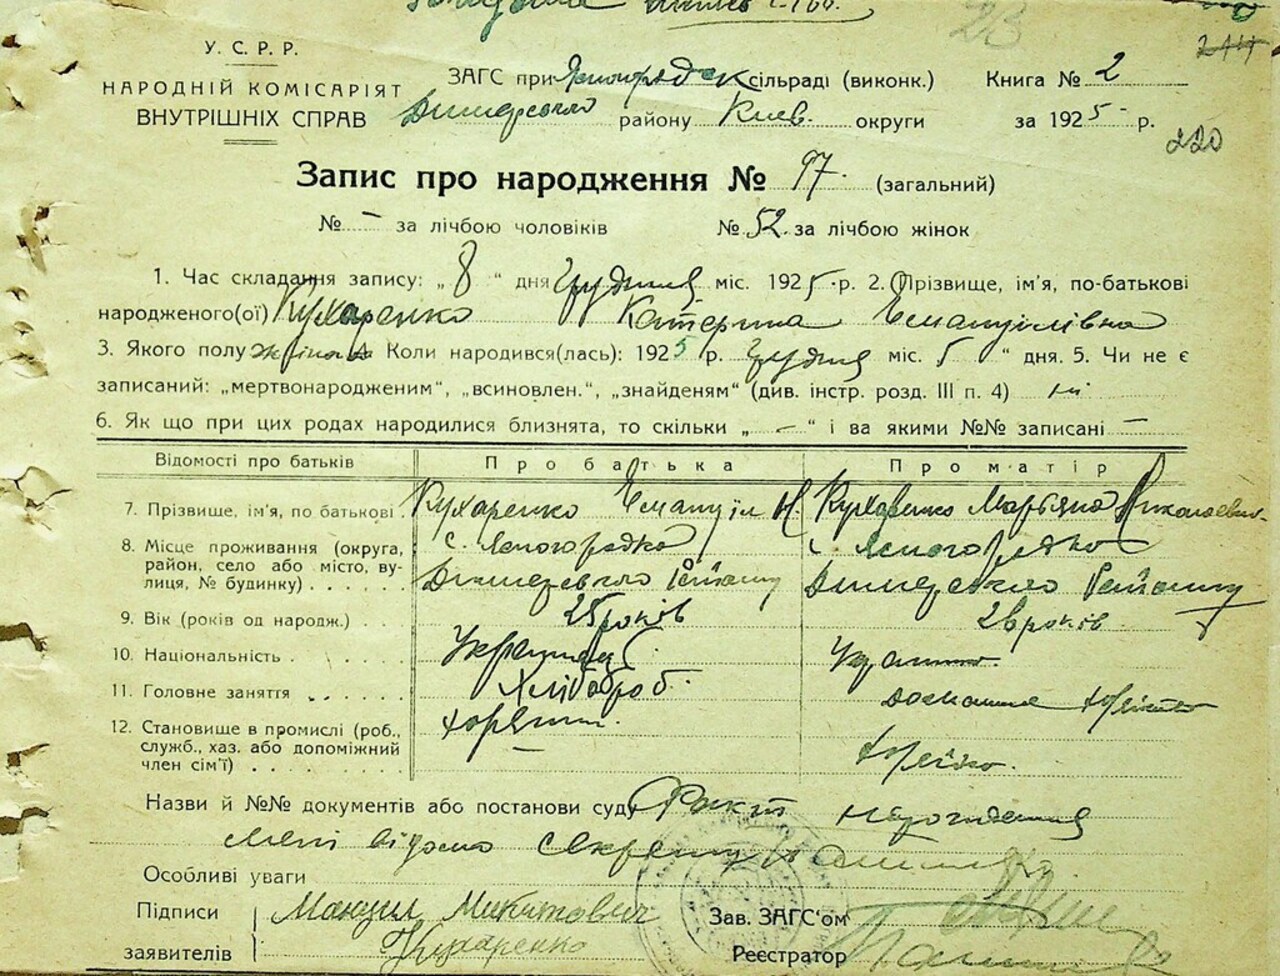 23
244
У. С. Р. Р.
НАРОДНІЙ КОМІСАРІЯТ
ВНУТРІШНІХ СПРАВ
ЗАГС при Ясногородск сільраді (виконк.) Книга № 2
Димерського району Киев. округи за 1925 р.
220
Запис про народження № 97. (загальний)
№ – за лічбою чоловіків № 52. за лічбою жінок
1. Час складання запису: „ 8 “ дня Грудня міс. 1925 р. 2. Прізвище, ім'я, по-батькові
народженого(ої) Кухаренко Катерина Емануілівна
3. Якого полу жіноч 4 Коли народився(лась): 1925 р. Грудня міс. 5 “ дня. 5. Чи не є
записаний: „мертвонародженим“, „всиновлен.“, „знайденям“ (див. інстр. розд. III п. 4) ні
6. Як що при цих родах народилися близнята, то скільки „ – “ і ва якими №№ записані –
Відомості про батьків Про батька Про матір
7. Прізвище, ім'я, по батькові . Кухаренко Емануіл Н. Кухаренко Мар'яна Николаевн-
8. Місце проживання (округа, с. Ясногородка с. Ясногородка
район, село або місто, ву-
лиця, № будинку) . . . . . . Димерського Району Димерського Району
9. Вік (років од народж.) . . 25 років 28 років
10. Національність . . . . . . Українець
11. Головне заняття . . . . . . Хлібороб.
12. Становище в промислі (роб.,
служб., хаз. або допоміжний
член сім'ї) . . . . . . .
Назви й №№ документів або постанови суду Факт народження
мені відомо секретар
Особливі уваги
Підписи Мануил Микитович Зав. ЗАГС'ом
заявителів Кухаренко Реєстратор